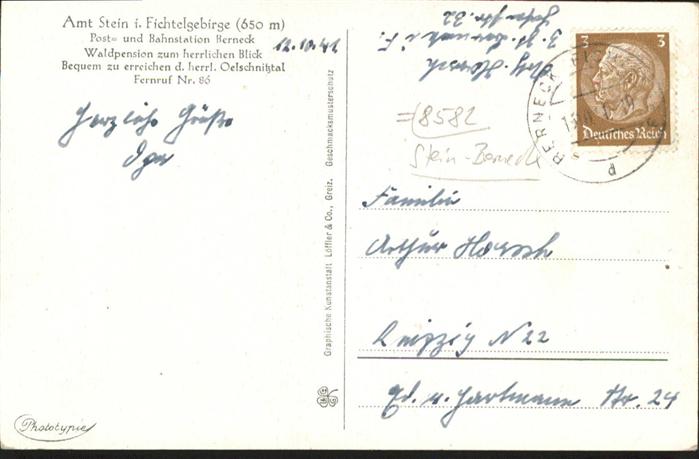 Amt Stein i. Fichtelgebirge (650 m)
Post= und Bahnstation Berneck
Waldpension zum herrlichen Blick
Bequem zu erreichen d. herrl. Oelschnitztal
Fernruf Nr. 86
12.10.41
Herzliche Grüße
Phototypie
Graphische Kunstanstalt Löffler & Co., Greiz. Geschmacksmusterschutz
Horsch
=(8582
Stein-Berneck
3 3
Deutsches Reich
BERNECK
Familie
Arthur Horsch
Leipzig N 22
Ed. v. Hartmann Str. 24